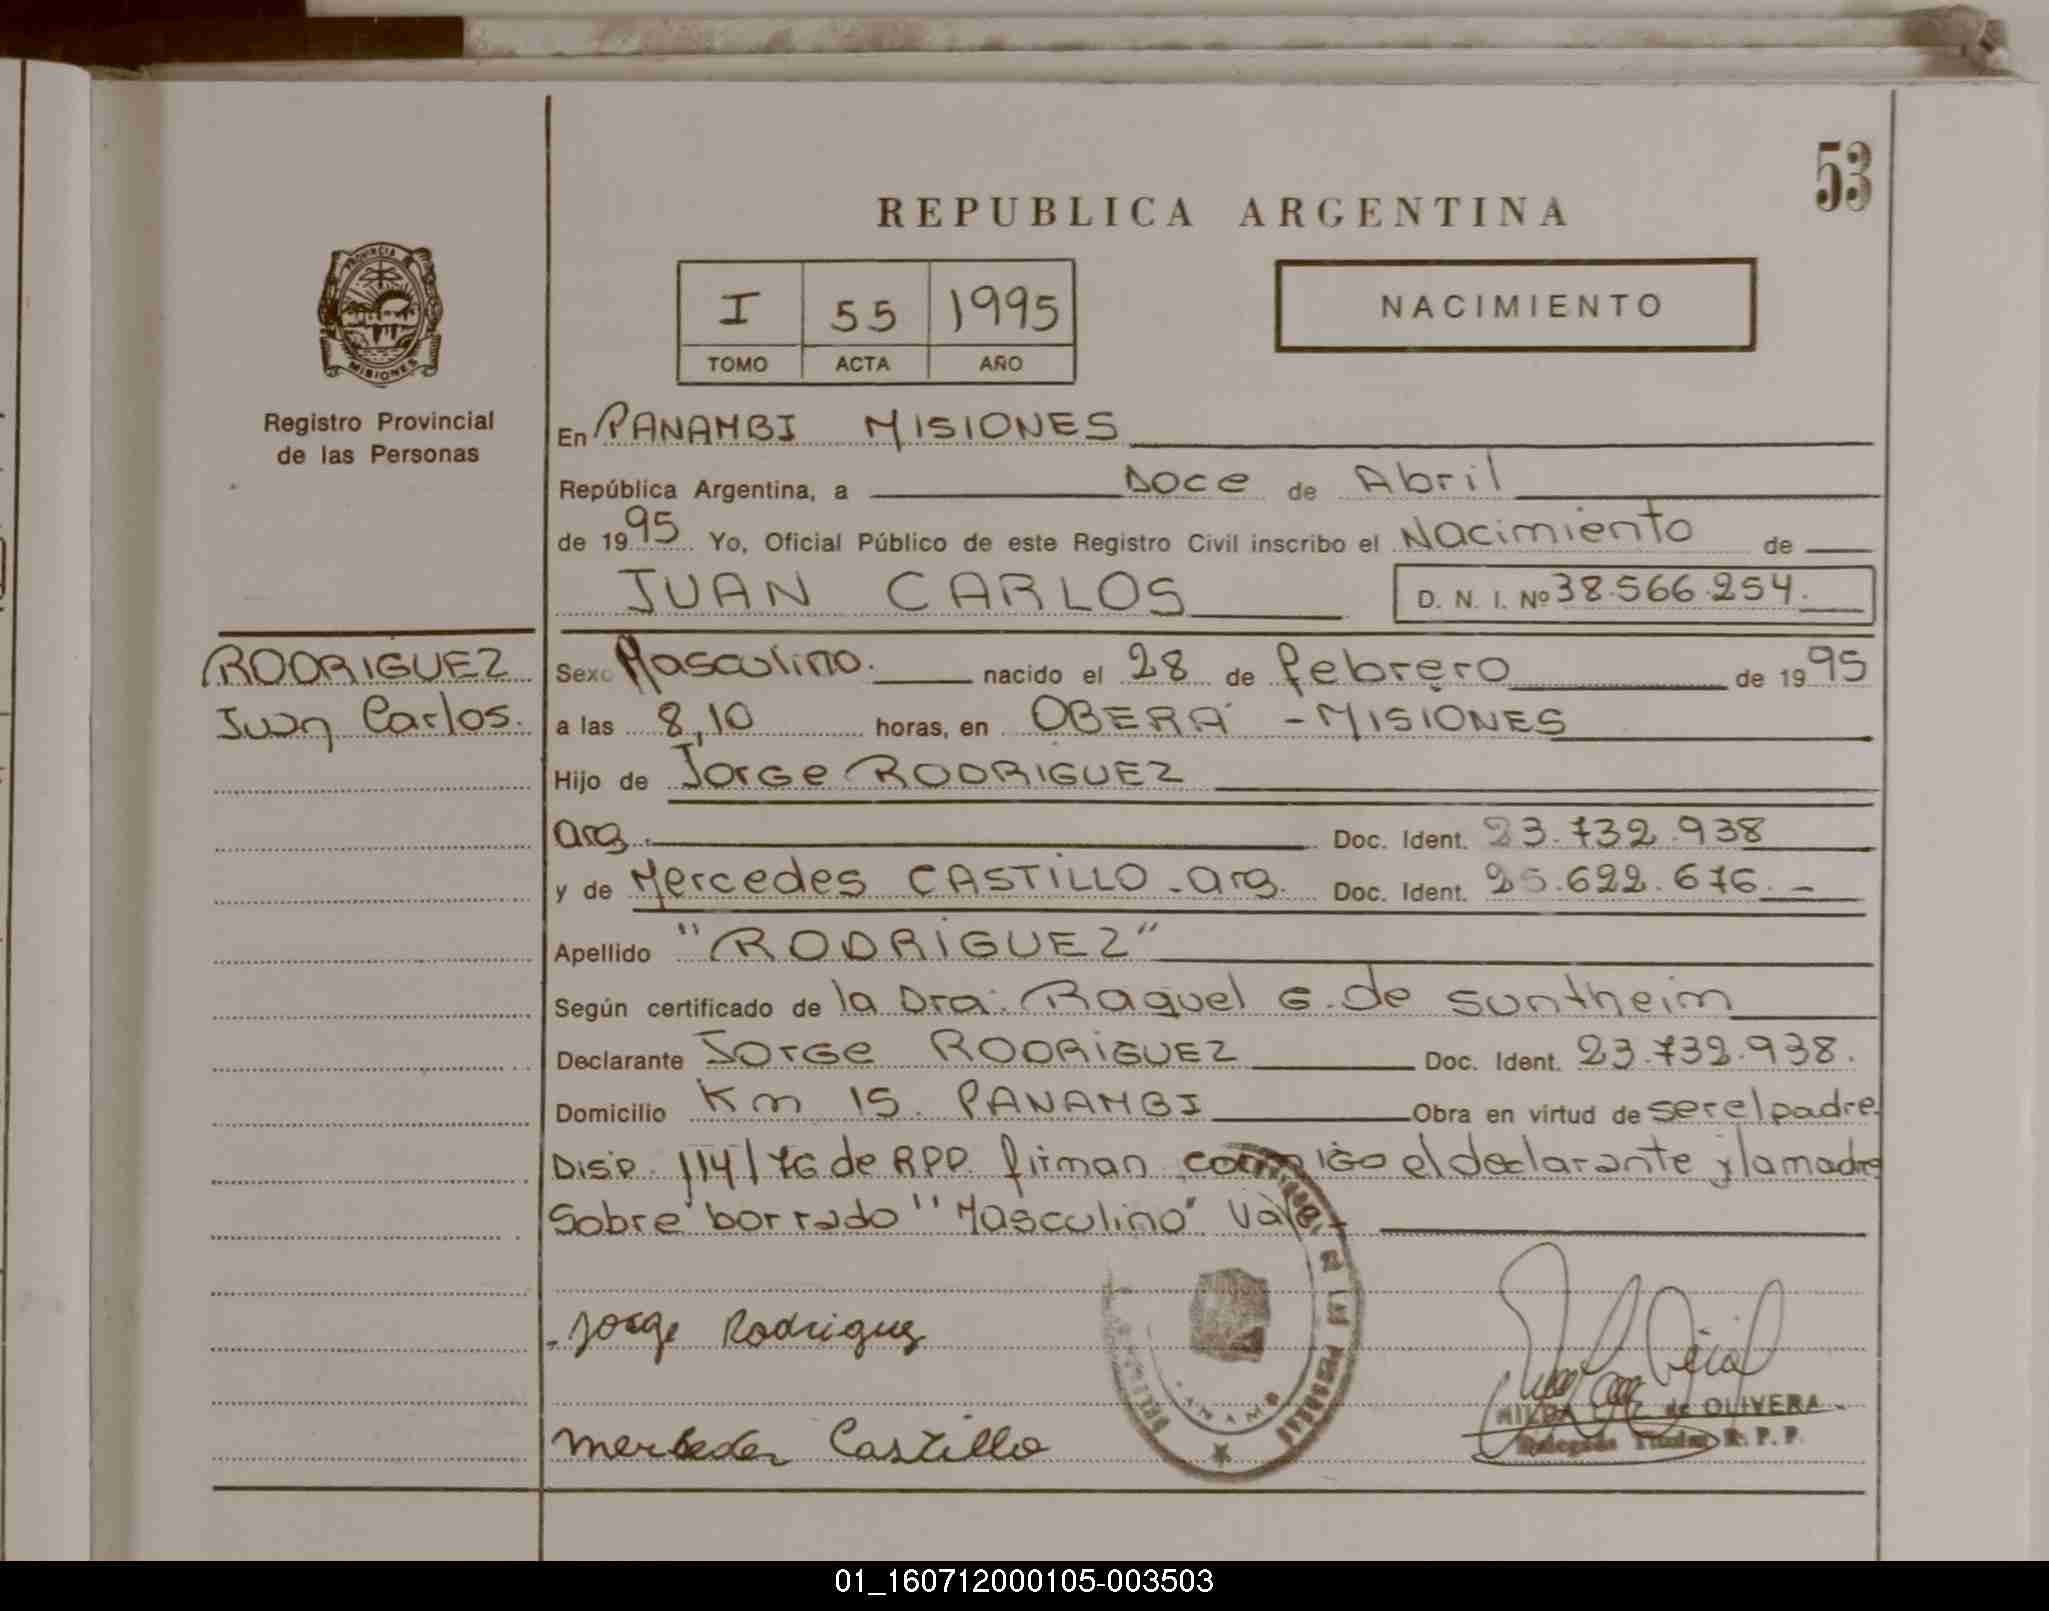 53
REPUBLICA ARGENTINA
PROVINCIA DE
MISIONES
I 55 1995
TOMO ACTA AÑO
NACIMIENTO
Registro Provincial
de las Personas
En PANAMBI MISIONES
República Argentina, a Doce de Abril
de 1995 Yo, Oficial Público de este Registro Civil inscribo el Nacimiento de
JUAN CARLOS D. N. I. Nº 38.566.254.
RODRIGUEZ
Juan Carlos.
Sexo Masculino. nacido el 28 de febrero de 1995
a las 8,10 horas, en OBERÁ - MISIONES
Hijo de Jorge RODRIGUEZ
arg. Doc. Ident. 23.732.938
y de Mercedes CASTILLO - arg. Doc. Ident. 25.622.676. -
Apellido "RODRIGUEZ"
Según certificado de la Dra. Raquel G. de Suntheim
Declarante Jorge RODRIGUEZ Doc. Ident. 23.732.938.
Domicilio Km 15 PANAMBI Obra en virtud de ser el padre
Disp. 114/76 de RPP. firman conmigo el declarante y la madre
Sobre borrado "Masculino" Vale
Jorge Rodriguez
DE LAS PERSONAS
PANAMBI
Mercedes Castillo
HILDA de OLIVERA
Delegada Titular R. P. P.
01_160712000105-003503